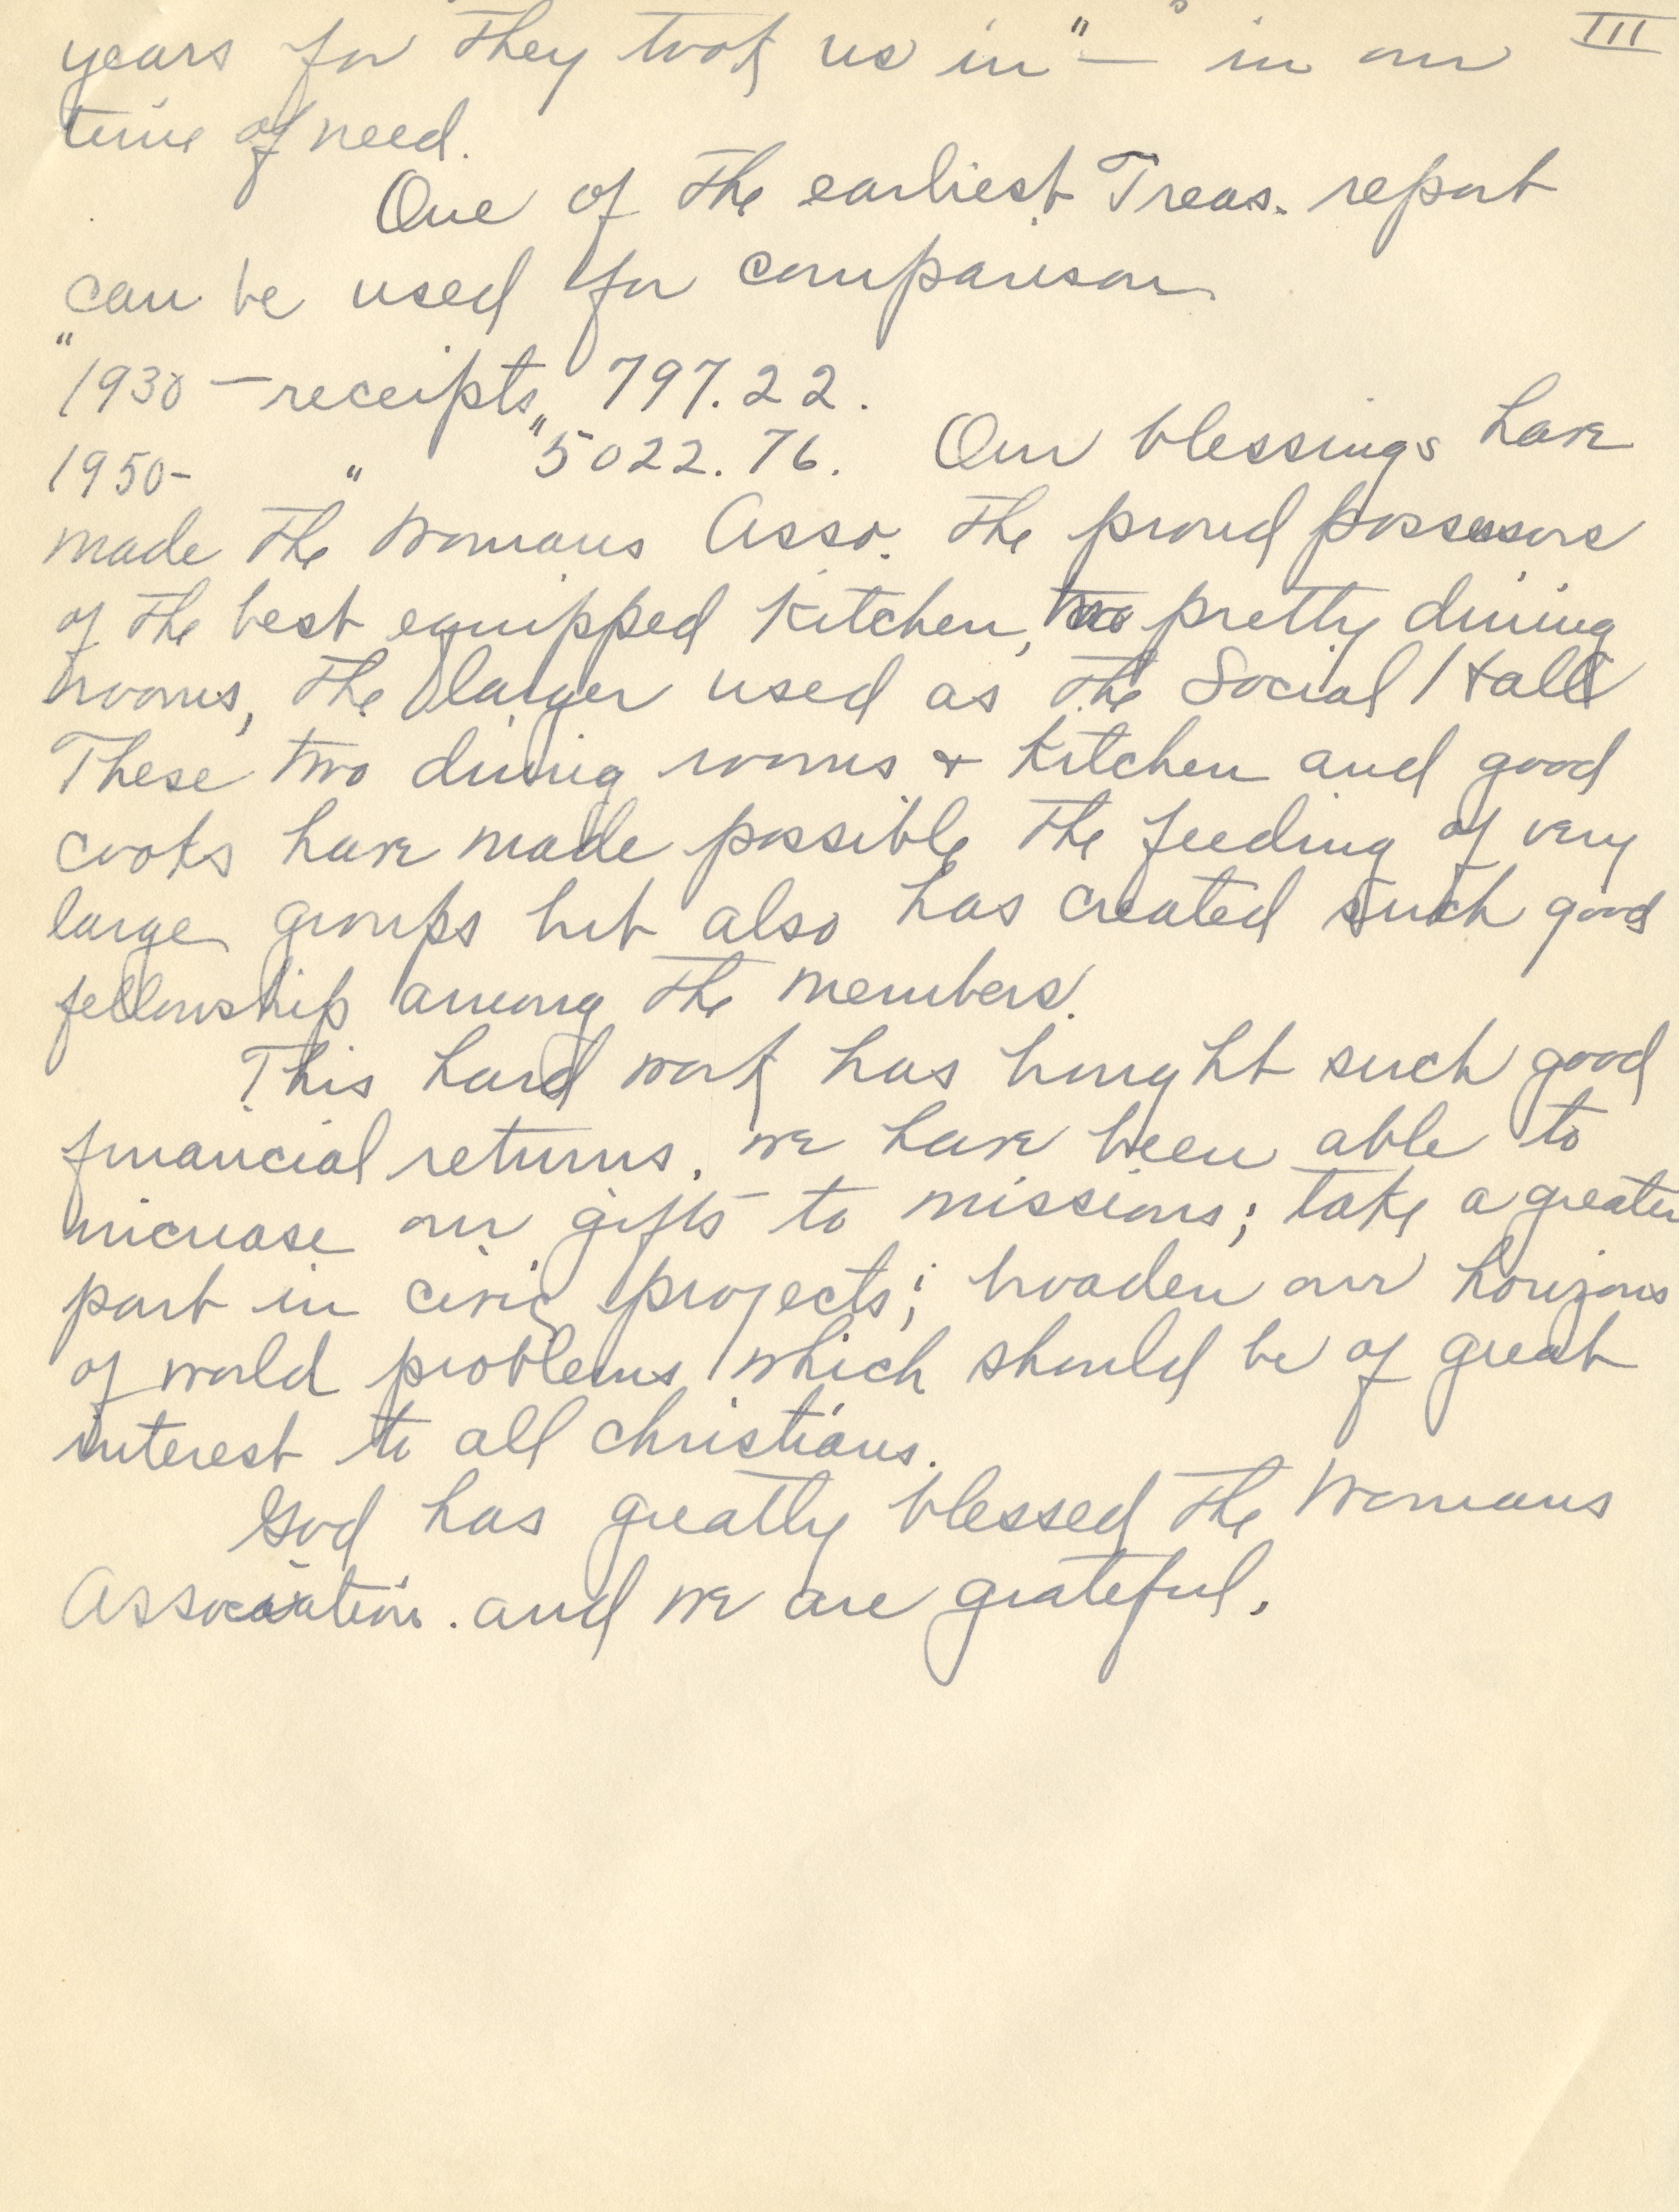 III
years for they took us in" — in our
time of need.
One of the earliest Treas. report
can be used for comparison
"1930 — receipts, 797.22.
1950- " "5022.76. Our blessings have
made the Womans Asso. the proud possessors
of the best equipped kitchen, two pretty dining
rooms, the larger used as the Social Hall
These two dining rooms & kitchen and good
cooks have made possible the feeding of very
large groups but also has created such good
fellowship among the members.
This hard work has bought such good
financial returns. we have been able to
increase our gifts to missions; take a greater
part in civic projects; broaden our horizons
of world problems which should be of great
interest to all christians.
God has greatly blessed the Womans
Association. and we are grateful.